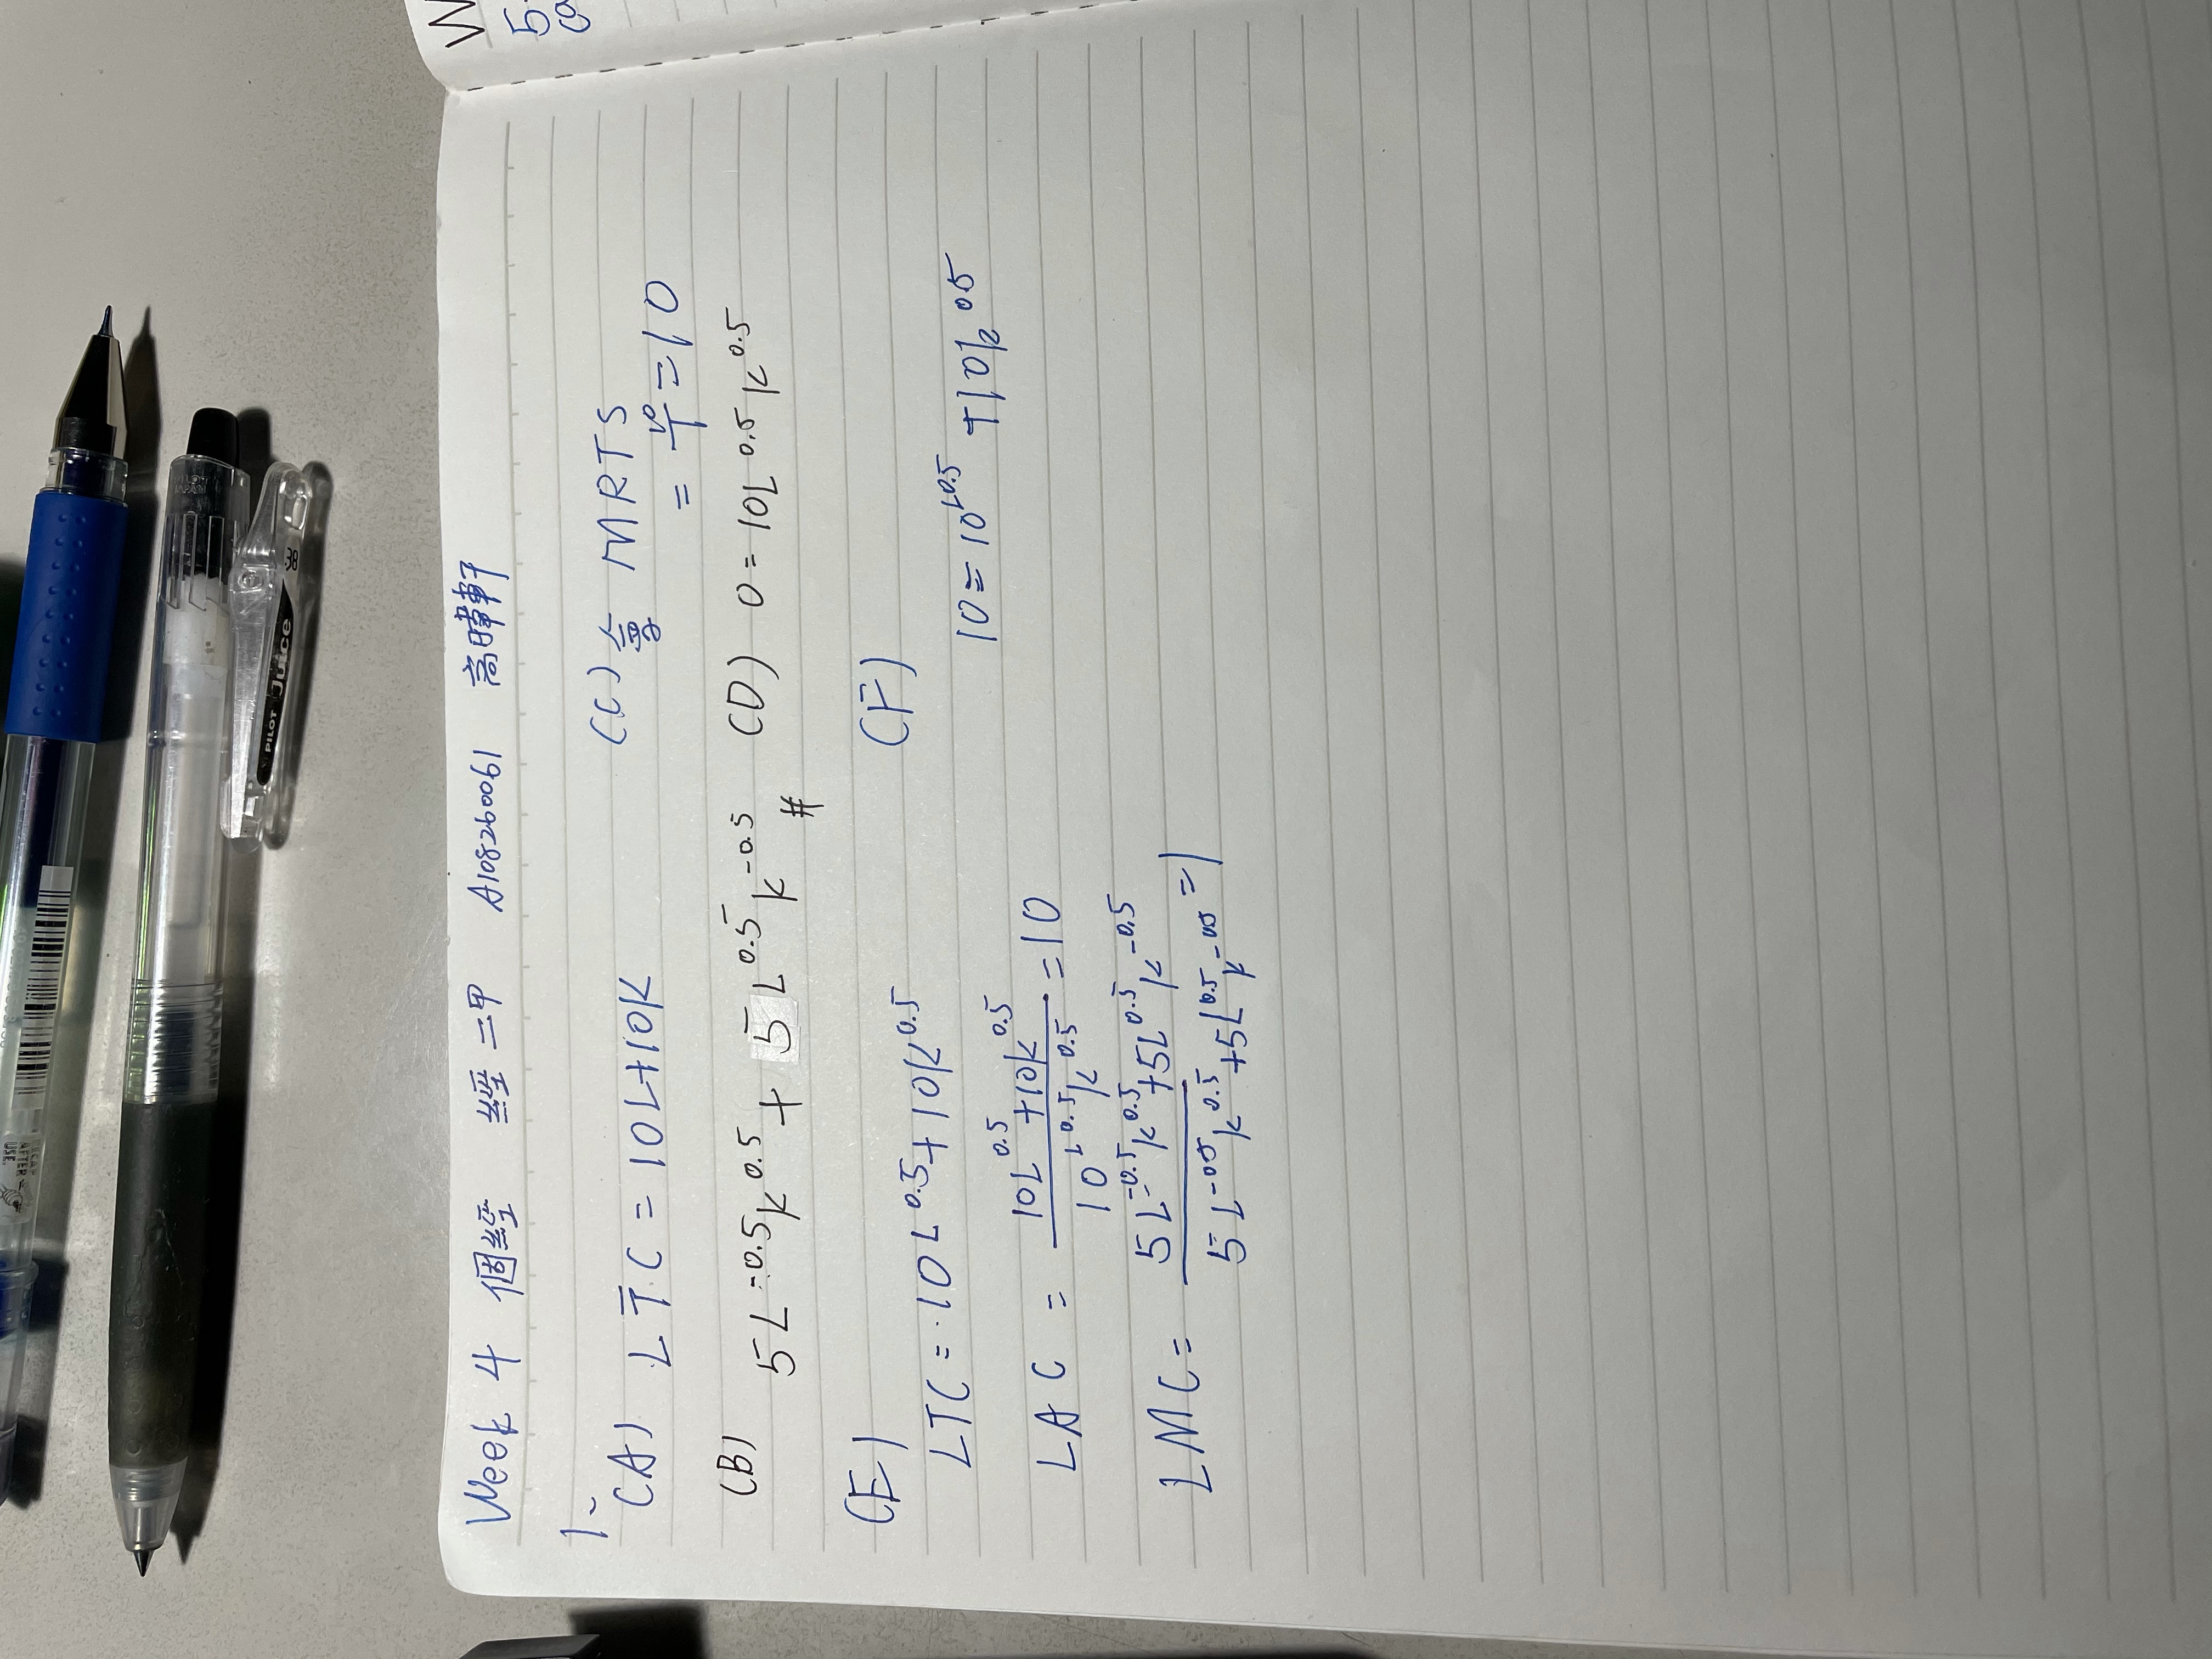 PILOT Juice 38
Week 4 個經 經二甲 A108260061 高暐軒
1.
(A) LTC = 10L+10K
(C) 會 MRTS
= 10/1 = 10
(B) 5L^-0.5 K^0.5 + 5L^0.5 K^-0.5 #
(D) 0 = 10L^0.5 K^0.5
(E)
LTC = 10L^0.5 + 10K^0.5
LAC = 10L^0.5+10K^0.5 / 10L^0.5 K^0.5 = 10
LMC = 5L^-0.5 K^0.5+5L^0.5 K^-0.5 / 5L^-0.5 K^0.5+5L^0.5 K^-0.5 = 1
(F)
10 = 10L^0.5 + 10K^0.5
W
5
ca